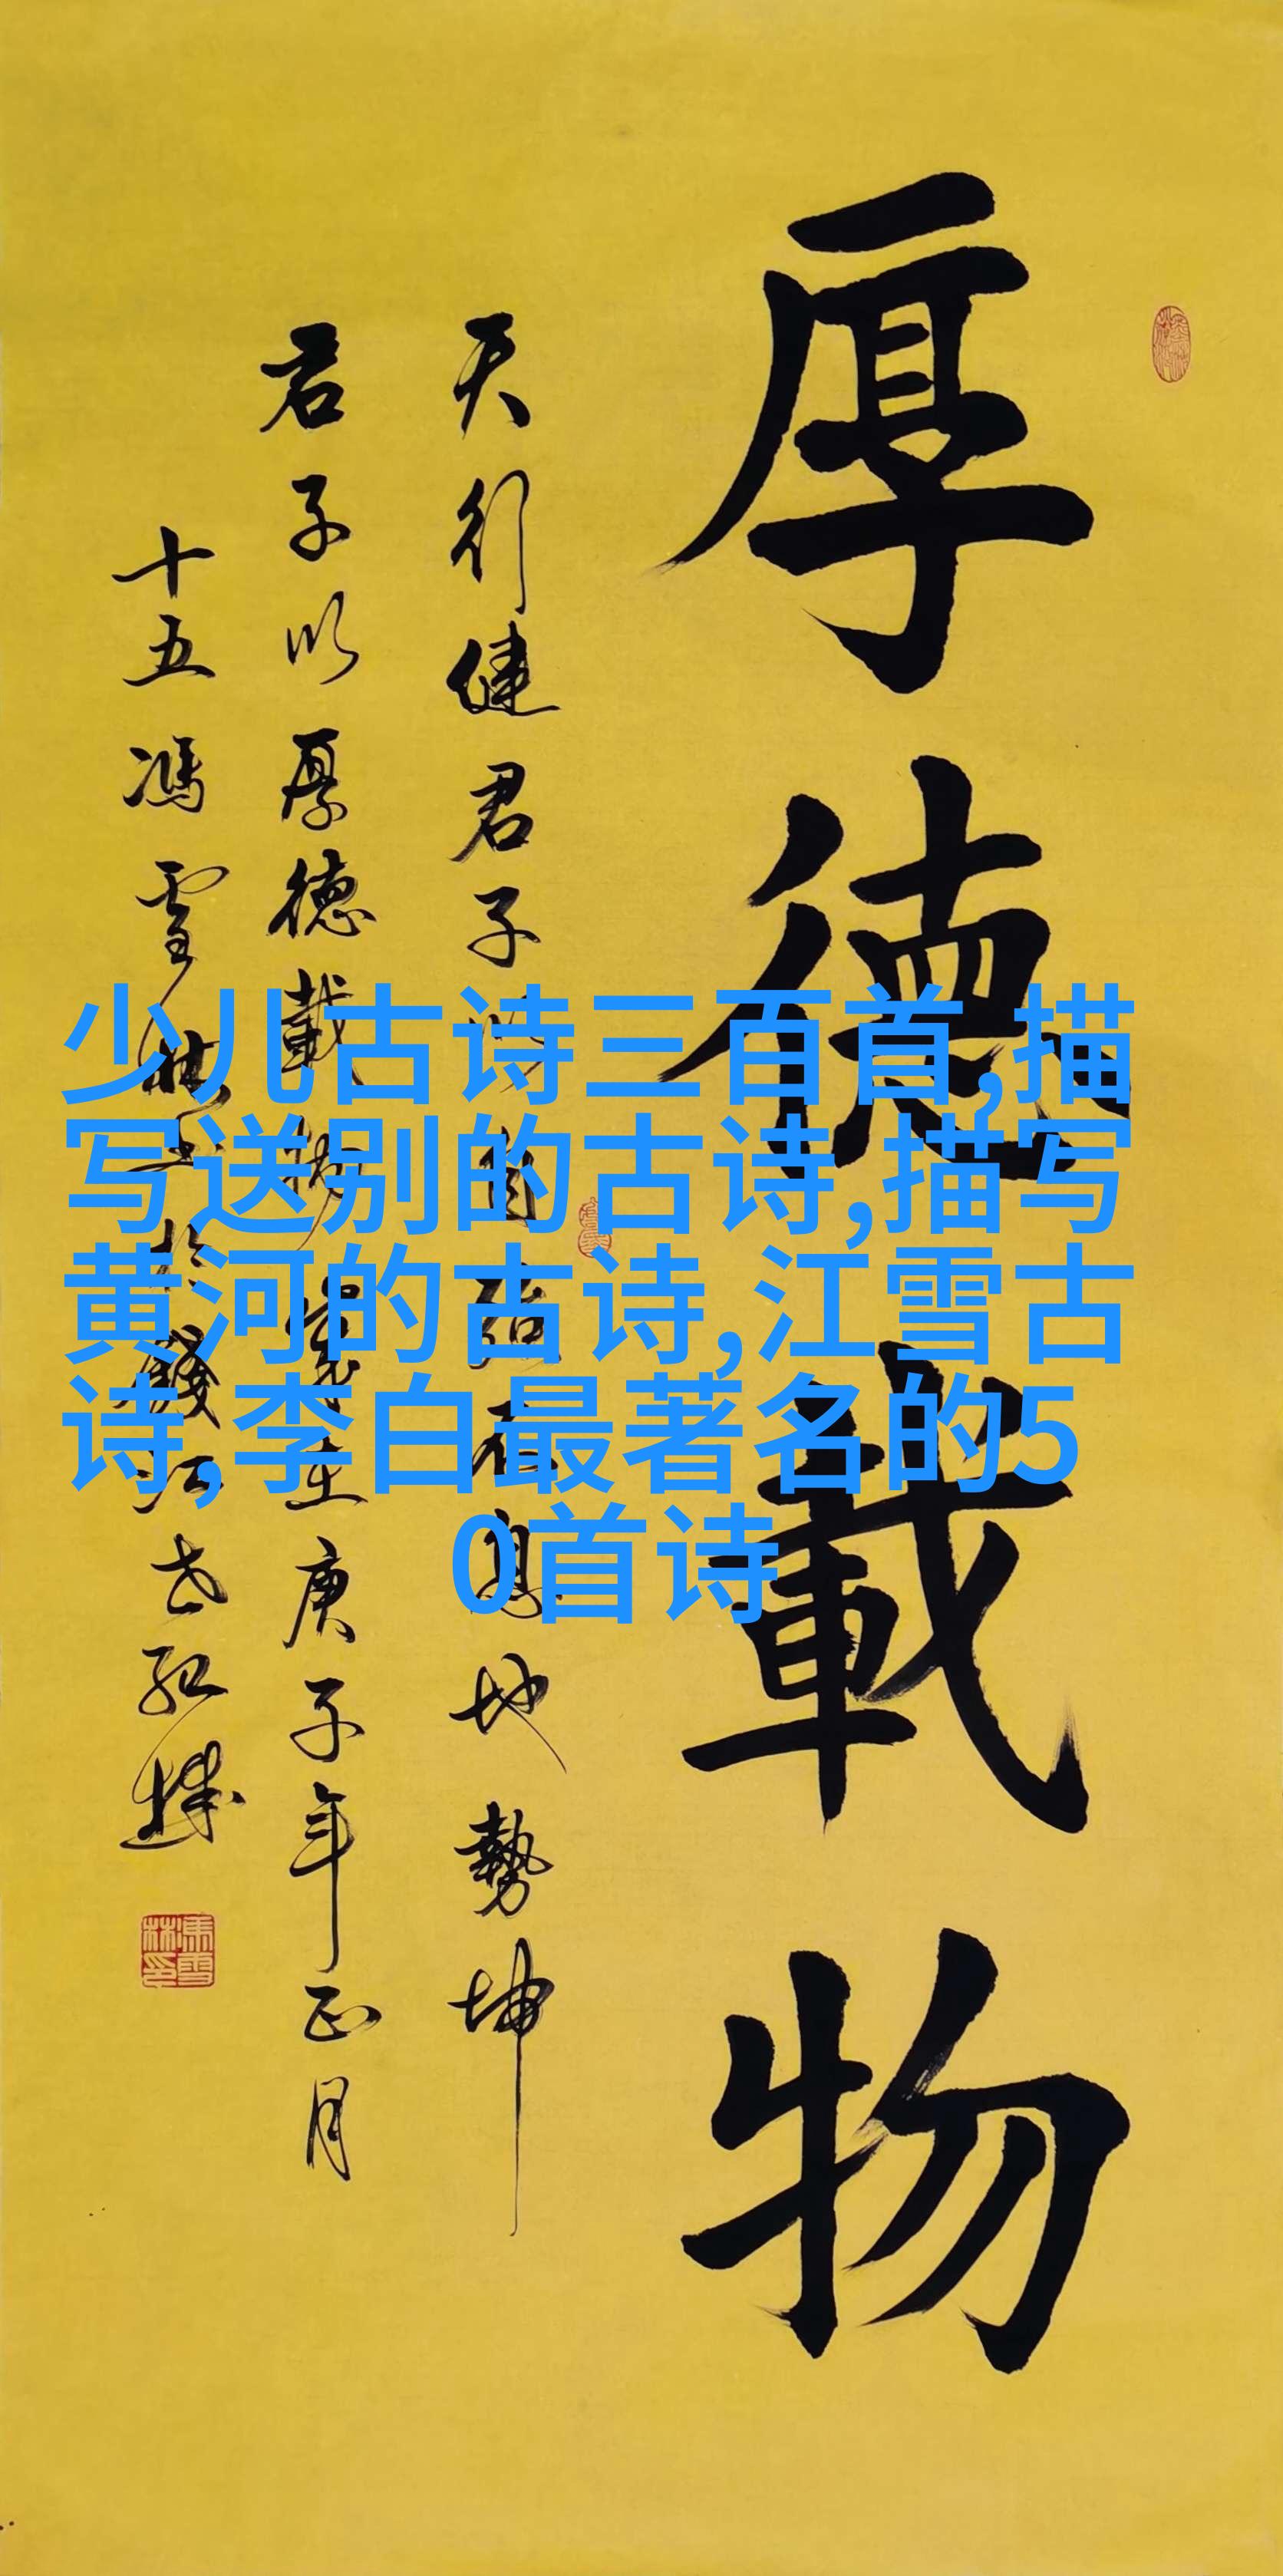 厚德載物
天行健君子以自強不息地勢坤
君子以厚德載物 歲在庚子年正月
十五馮雪林书於錢江
少儿古诗三百首,描
写送别的古诗,描写
黄河的古诗,江雪古
诗,李白最著名的5
0首诗